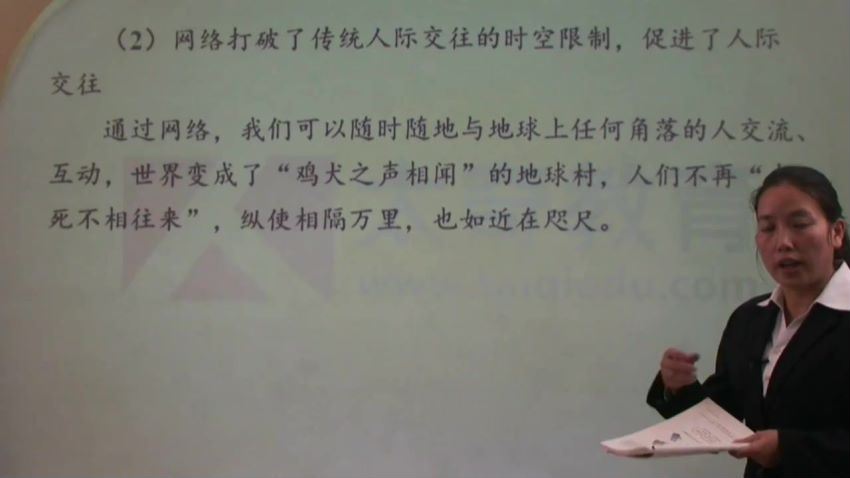 （2）网络打破了传统人际交往的时空限制，促进了人际
交往
通过网络，我们可以随时随地与地球上任何角落的人交流、
互动，世界变成了“鸡犬之声相闻”的地球村，人们不再“
死不相往来”，纵使相隔万里，也如近在咫尺。
教育